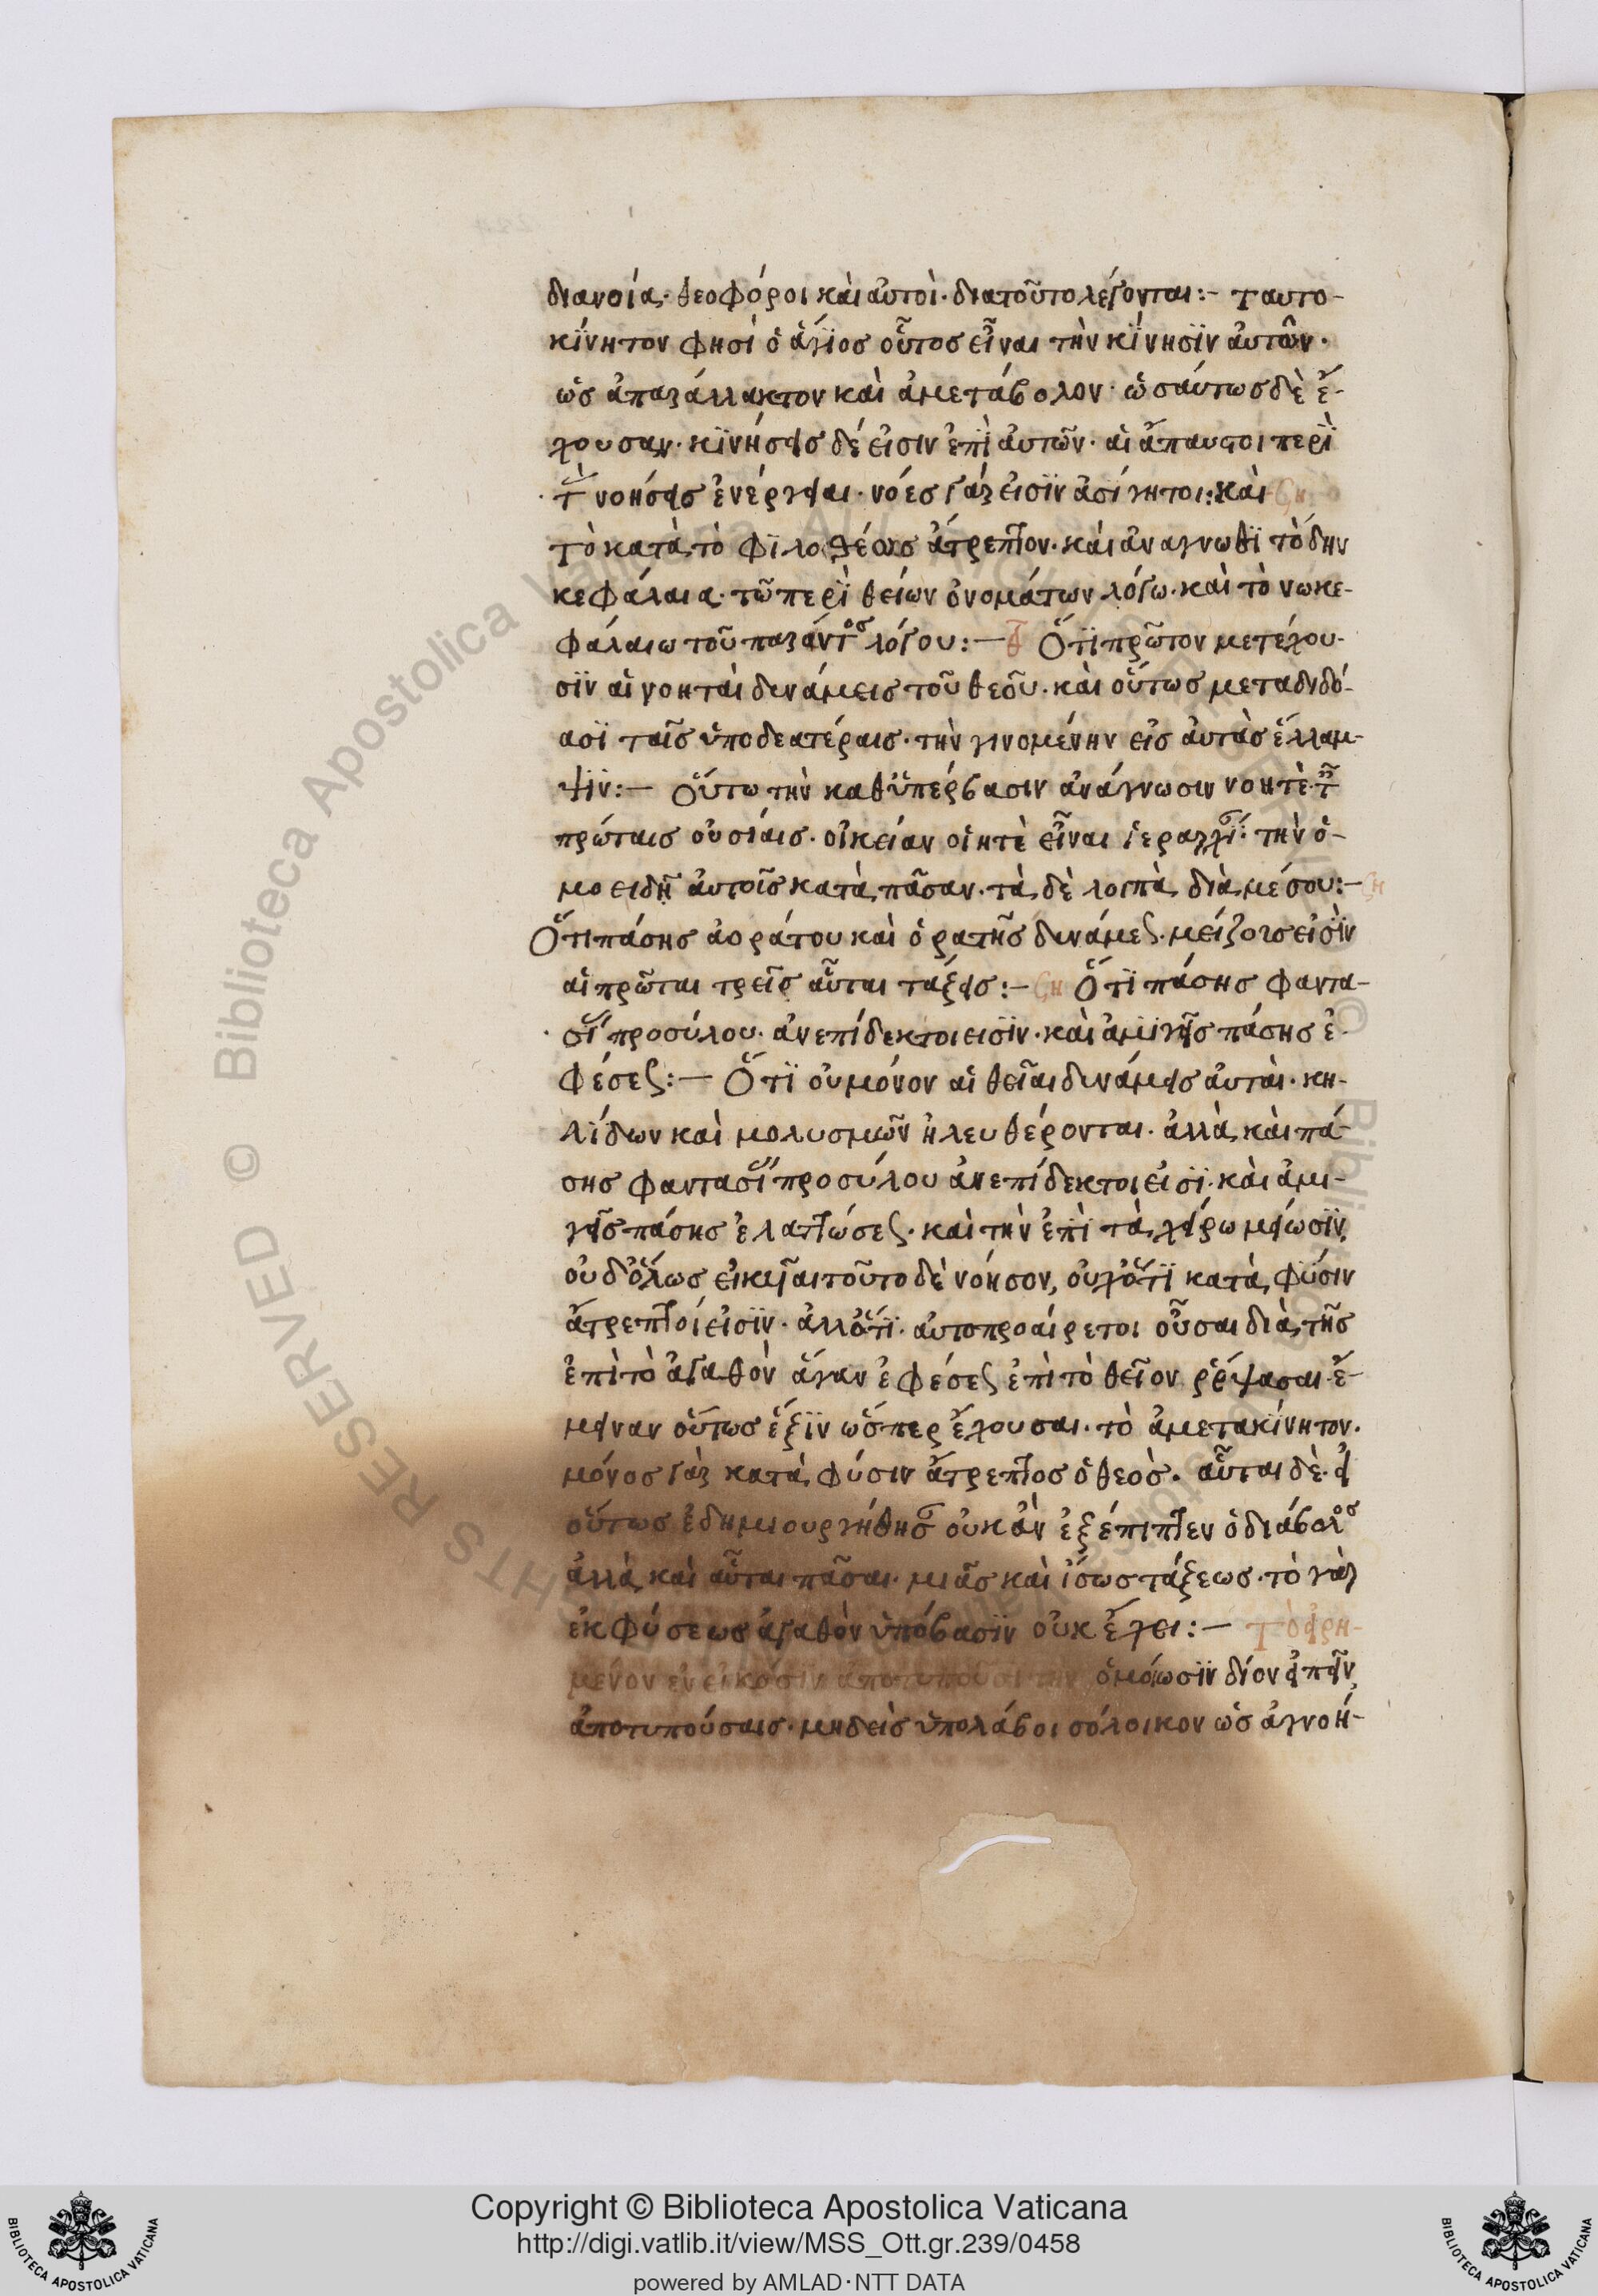 διανοία· θεοφόροι καὶ αὐτοὶ· διατοῦτο λέγονται:– ταυτο-
κίνητον φησὶ ὁ ἅγϊος οὗτος εἶναι τὴν κίνησϊν αὐτῶν·
ὡς ἀπαράλλακτον καὶ ἀμετάβολον· ὡσαύτως δὲ ἔ-
χουσαν· κϊνήσεις δέ εἰσιν ἐπὶ αὐτῶν· αἱ ἄπαυστοι περὶ
τὰς νοήσεις ἐνέργειαι· νόες γάρ εἰσϊν ἀσίγητοι: καὶ
τὸ κατὰ τὸ φϊλοθέως ἄτρεπτον· καὶ ἀναγνωθϊ τὸ δην
κεφάλαια· τῶ περὶ θείων ὀνομάτων λόγω· καὶ τὸ νωκε-
φάλαιω τοῦ παρόντος λόγου:– Ὅτϊ πρῶτον μετέχου-
σϊν αἱ νοηταὶ δυνάμεις τοῦ θεοῦ· καὶ οὕτως μεταδιδό-
ασϊ ταῖς ὑποδεατέραις· τὴν γινομένην εἰς αὐτὰς ἔλλαμ-
ψϊν:– Οὕτω τὴν καθ ὑπέρβασιν ἀνάγνωσιν νοητέ· ταῖς
πρώταις οὐσίαις· οἰκείαν οἱητὲ εἶναι ἱεραρχίαν· τὴν ὁ-
μοειδῆ αὐτοῖς κατὰ πᾶσαν· τὰ δὲ λοιπὰ διὰ μέσου:–
Ὅτι πάσης ἀοράτου καὶ ὁρατῆς δυνάμεως· μείζοις εἰσὶν
αἱ πρῶται τρεῖς αὗται τάξεις:– Ὅτϊ πάσης φαντα-
σίας προσύλου· ἀνεπίδεκτοι εισϊν· καὶ ἀμϊγεῖς πάσης ἐ-
φέσεως:– Ὅτϊ οὐ μόνον αἱ θεῖαι δυνάμεις αὐταὶ· κη-
λίδων καὶ μολυσμῶν ἠλευθέρονται· ἀλλὰ καὶ πά-
σης φαντασίας προσύλου ἀνεπίδεκτοι εἰσϊ· καὶ ἀμι-
γεῖς πάσης ἐλαττώσεως· καὶ τὴν ἐπὶ τὰ χείρω μείωσϊν,
οὐδ ὅλως εἰκεῖαι τοῦτο δὲ νόησον, οὐχ ὅτϊ κατὰ φύσιν
ἄτρεπτοί εἰσϊν· ἀλλ ὅτϊ· αὐτοπροαίρετοι οὖσαι διὰ τῆς
ἐπὶ τὸ ἀγαθὸν ἄγαν ἐφέσεως ἐπὶ τὸ θεῖον ῥρίψασαι ἔ-
μειναν οὕτως ἕξϊν ὥσπερ ἔχουσαι· τὸ ἀμετακίνητον·
μόνος γὰρ κατὰ φύσιν ἄτρεπτος ὁ θεὸς· αὗται δὲ· εἰ
οὕτως ἐδημιουργήθησαν οὐκ ἂν ἐξέπιπτεν ὁ διάβολος
ἀλλὰ καὶ αὗται πᾶσαι· μιᾶς καὶ ἴσως τάξεως· τὸ γὰρ
ἐκ φύσεως ἀγαθὸν ὑπόβασϊν οὐκ ἔχει:– Τὸ εἰρη-
μένον ἐν εἰκόσιν ἀποτυποῦσι τὴν ὁμόωσϊν δίον εἰπεῖν,
ἀποτυπούσαις· μηδεὶς ὑπολάβοι σόλοικον ὡς ἀγνοή-
Copyright © Biblioteca Apostolica Vaticana
http://digi.vatlib.it/view/MSS_Ott.gr.239/0458
powered by AMLAD·NTT DATA